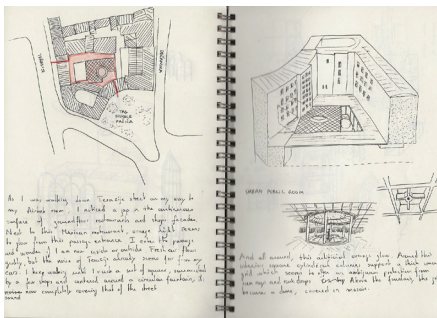 TERAZIJE
DECANSKA
TRG
NIKOLE
PAŠIĆA
As I was walking down Terazije street on my way to
my Airbnb room, I noticed a gap in the continuous
surface of groundfloor restaurants and shops facades.
Next to this Mexican restaurant, orange light seems
to glow from this passage entrance. I enter the passage
and wonder: I am now inside or outside. Fresh air flow
gently, but the noise of Terazije already seems far from my
ears. I keep walking until I reach a sort of square, surrounded
by a few shops and centered around a circular fountain,
sound now completely covering that of the street.
URBAN PUBLIC ROOM
And all around, this artificial orange glow. Around this
interior square cylindrical columns support a thick
grid which seems to offer an ambiguous protection from
sun rays and rain drops. Above the fountain, the grid
becomes a dome, covered in